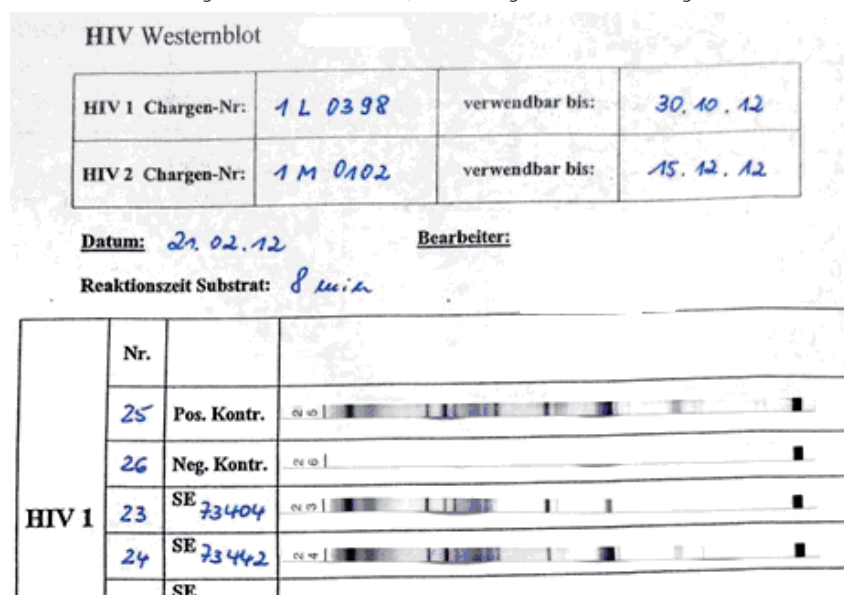 HIV Westernblot
HIV 1 Chargen-Nr: 1 L 0398 verwendbar bis: 30.10.12
HIV 2 Chargen-Nr: 1 M 0102 verwendbar bis: 15.12.12
Datum: 21.02.12 Bearbeiter:
Reaktionszeit Substrat: 8 min
Nr.
25 Pos. Kontr. 25
26 Neg. Kontr. 26
HIV 1
23 SE 73404 23
24 SE 73442 24
SE